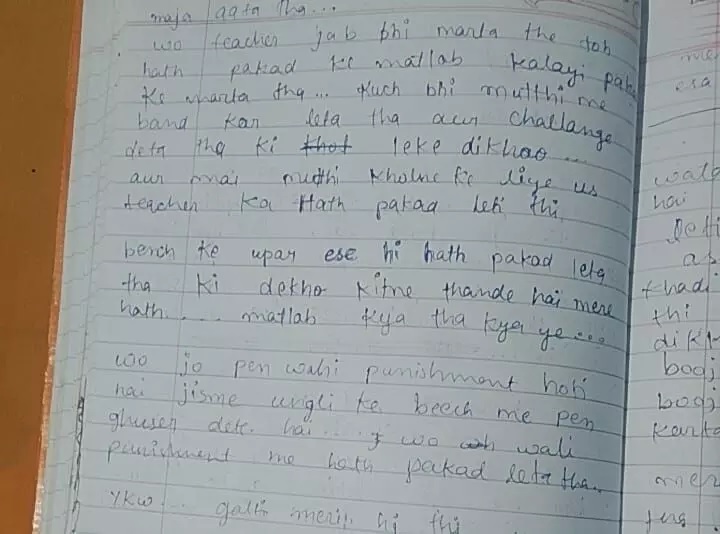 maja aata tha...
wo teacher jab bhi marta the toh
hath pakad ke matlab kalayi paka
ke marta tha... Kuch bhi mutthi me
band kar leta tha aur challange
deta tha ki thot leke dikhao ...
aur mai mutthi kholne ke liye us
teacher ka Hath pakad leti thi
bench ke upar ese hi hath pakad leta
tha ki dekho kitne thande hai mere
hath .... matlab kya tha kya ye....
wo jo pen wali punishment hoti
hai jisme ungli ke beech me pen
ghuseh dete hai .... wo wali
punishment me hath pakad leta tha..
YKW... galti meri hi thi
me
esa
wale
hai
leti
as
khadi
thi
dikh
bagj
bagj
karta
mer